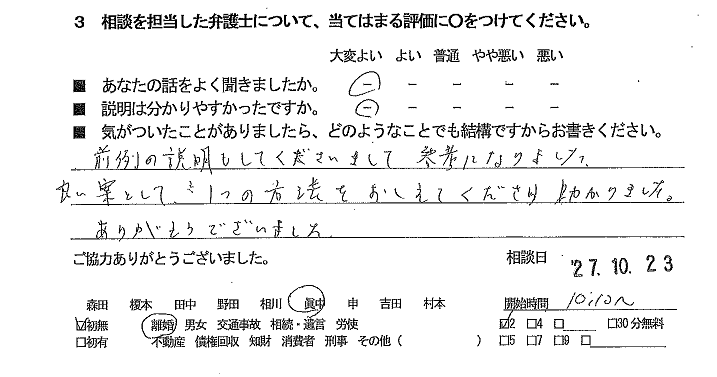 3 相談を担当した弁護士について、当てはまる評価に〇をつけてください。
大変よい よい 普通 やや悪い 悪い
■ あなたの話をよく聞きましたか。 － － － － －
■ 説明は分かりやすかったですか。 － － － － －
■ 気がついたことがありましたら、どのようなことでも結構ですからお書きください。
前例の説明もしてくださいまして 参考になりました、
良い案として、もう1つの方法をおしえてくださり助かりました。
ありがとうございました
ご協力ありがとうございました。 相談日 '27.10.23
森田 榎本 田中 野田 相川 眞中 申 吉田 村本 開始時間 10:10
☑初無 離婚 男女 交通事故 相続・遺言 労使 ☑2 □4 □ □30分無料
□初有 不動産 債権回収 知財 消費者 刑事 その他( ) □5 □7 □9 □